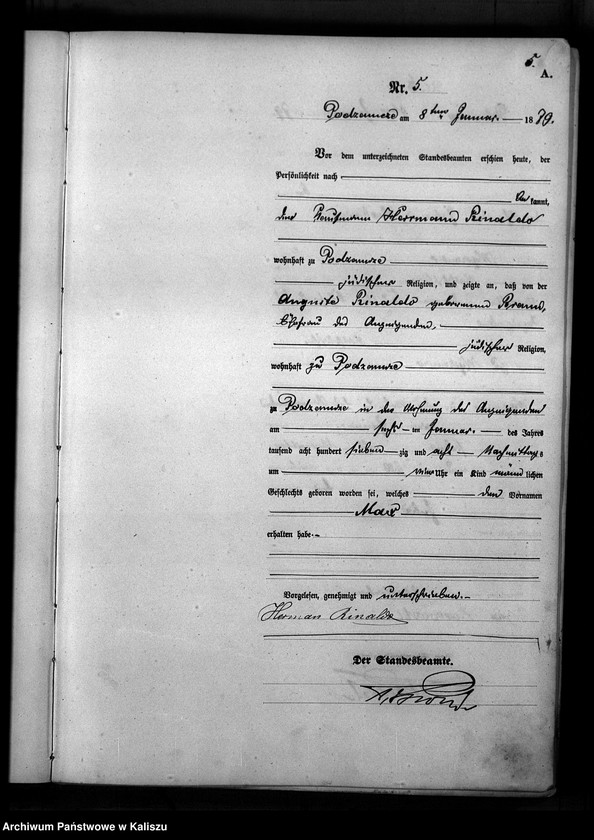 5.
A.
Nr. 5.
Podzamcze am 8ten Januar 1879.
Vor dem unterzeichneten Standesbeamten erschien heute, der
Persönlichkeit nach
kannt,
der Kaufmann Herrmann Rinaldo
wohnhaft zu Podzamcze
jüdischer Religion, und zeigte an, daß von der
Auguste Rinaldo geborenen
Ehefrau des Anzeigenden,
jüdischer Religion,
wohnhaft zu Podzamcze
zu Podzamcze in der Wohnung des Anzeigenden
am ten Januar des Jahres
tausend acht hundert sieben zig und Nachmittags
um Uhr ein Kind männlichen
Geschlechts geboren worden sei, welches den Vornamen
Max
erhalten habe.
Vorgelesen, genehmigt und unterschrieben.
Herman Rinaldo
Der Standesbeamte.
Archiwum Państwowe w Kaliszu